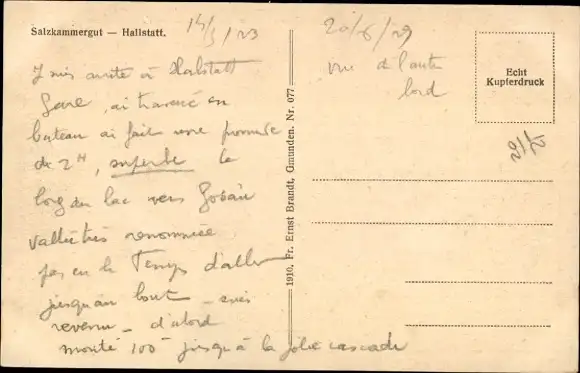 Salzkammergut — Hallstatt.
14/5/23
J suis arrêté à Halstatt
Gare, ai traversé en
bateau ai fait une promenade
de 2H, superbe le
long du lac vers Gosau
vallée très renommée
pas eu le temps d'aller
jusqu'au bout - suis
revenu - d'abord
monté 100 jusqu'à la jolie cascade
1910, Fr. Ernst Brandt, Gmunden. Nr. 077
vue de l'autre
bord
Echt
Kupferdruck